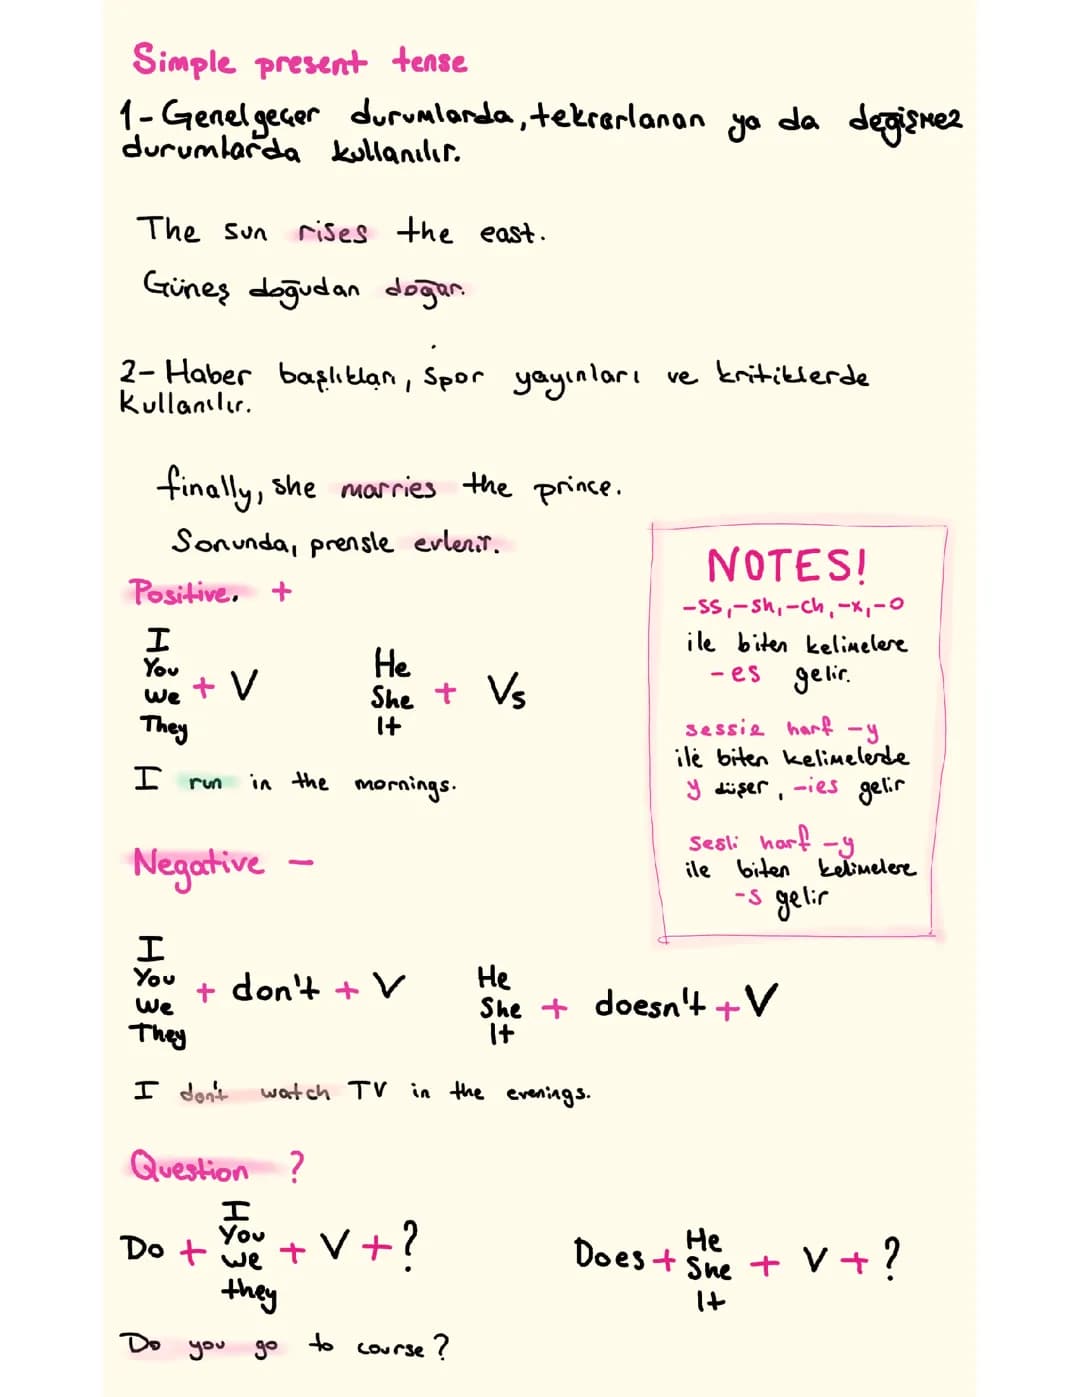 Simple present tense
1- Genel geçer durumlarda, tekrarlanan ya da değişmez
durumlarda kullanılır.
The sun rises the east.
Güneş doğudan doğar.
2- Haber başlıkları, Spor yayınları ve kritiklerde
Kullanılır.
finally, she marries the prince.
Sonunda, prensle evlenir.
Positive. +
I
You
We
They
+ V
He
She
It
+ Vs
I run in the mornings.
NOTES!
-ss, -sh, -ch, -x, -o
ile biten kelimelere
-es gelir.
sessiz harf -y
ile biten kelimelerde
y düşer, -ies gelir
Sesli harf -y
ile biten kelimelere
-s gelir
Negative -
I
You
We
They
+ don't + V
He
She
It
+ doesn't + V
I don't watch TV in the evenings.
Question ?
Do +
I
You
we
they
+ V + ?
Does +
He
She
It
+ V + ?
Do you go to course?